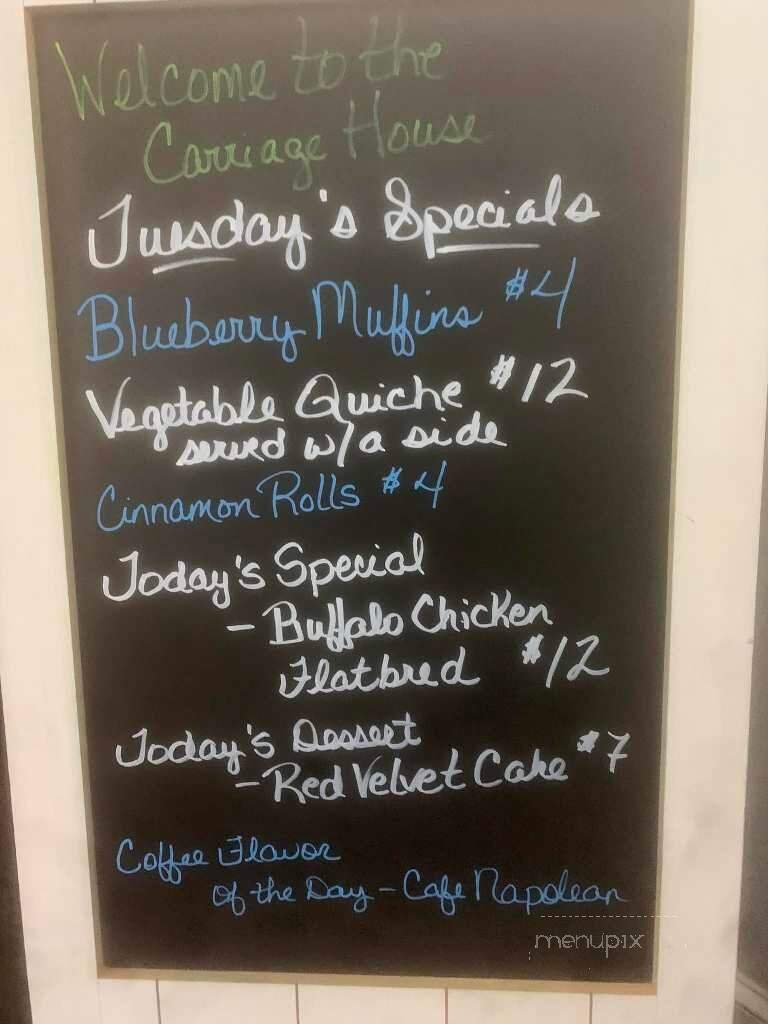 Welcome to the
Carriage House
Tuesday's Specials
Blueberry Muffins $4
Vegetable Quiche $12
served w/a side
Cinnamon Rolls $4
Today's Special
- Buffalo Chicken
Flatbred $12
Today's Dessert
- Red Velvet Cake $7
Coffee Flavor
Of the Day - Cafe Napolean
menupix